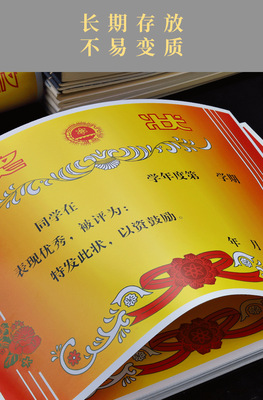 长期存放
不易变质
状
同学在 学年度第 学期
表现优秀，被评为：
特发此状，以资鼓励。
年 月